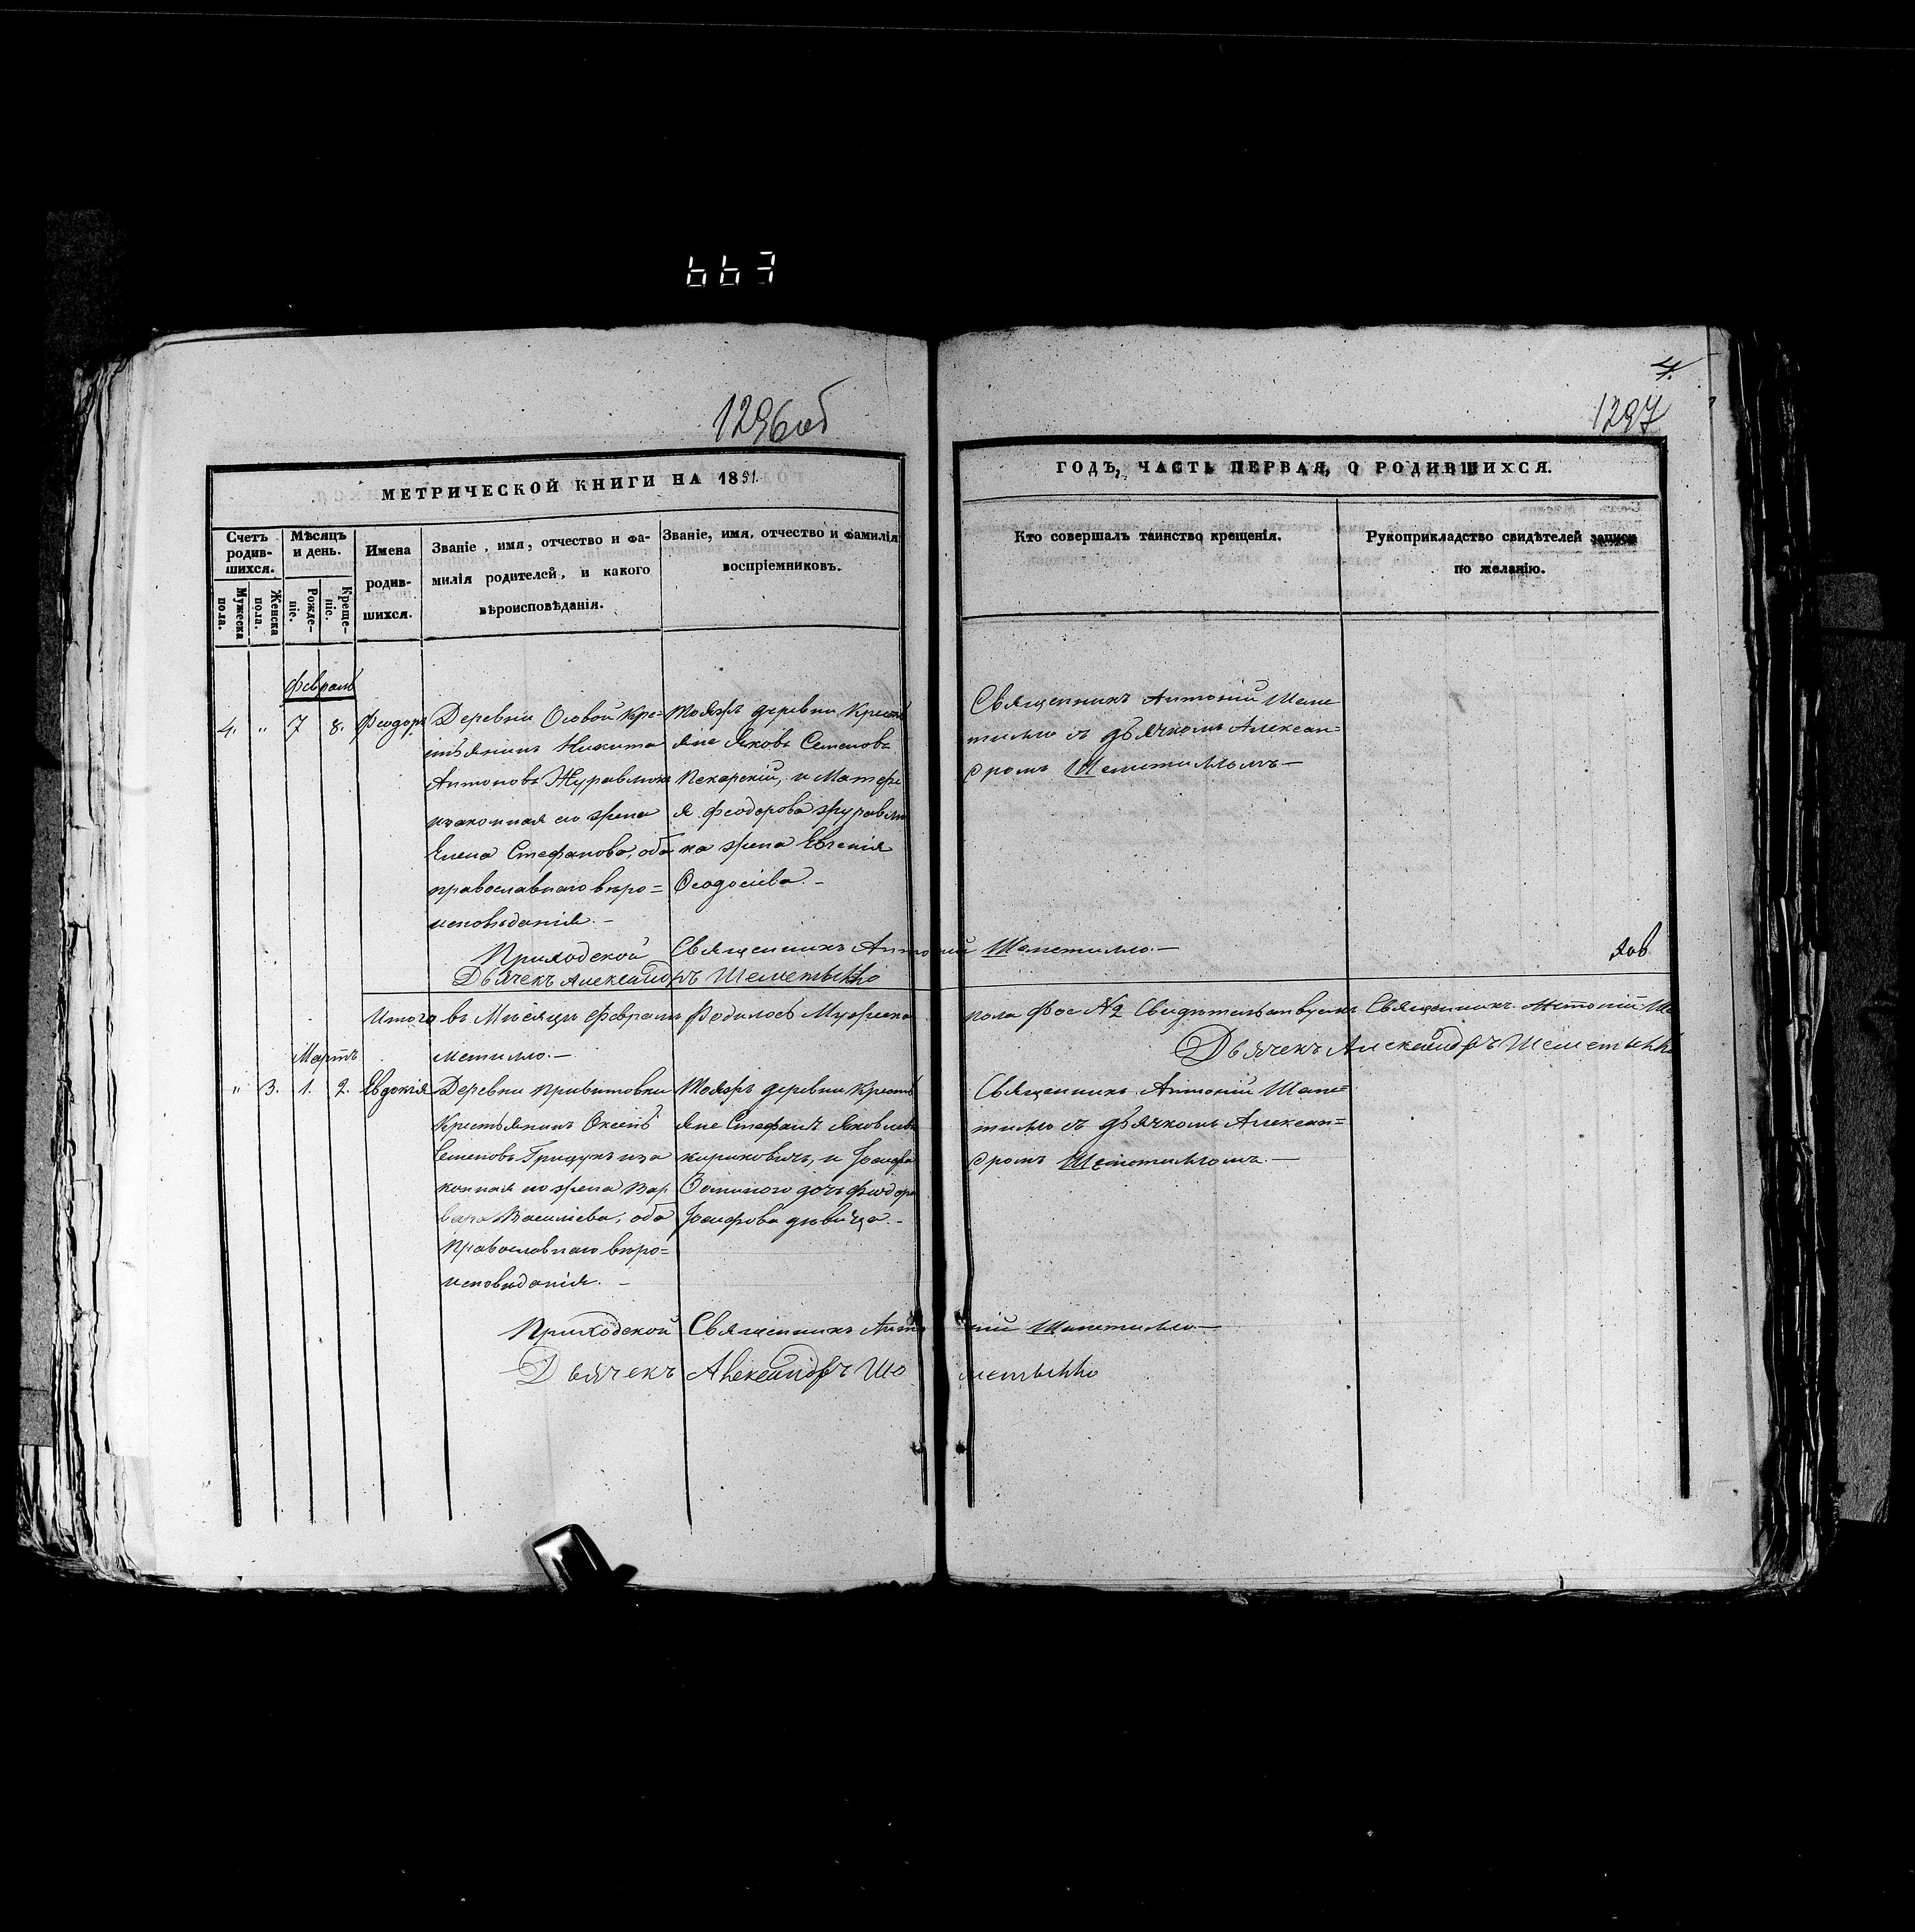 667
1296об
4.
1297
МЕТРИЧЕСКОЙ КНИГИ НА 1851.
ГОДЪ, ЧАСТЬ ПЕРВАЯ, О РОДИВШИХСЯ.
Счетъ родив-шихся.
Мужеска пола.
Женска пола.
Мѣсяцъ и день.
Рожде-ніе.
Креще-ніе.
Имена родив-шихся.
Званіе, имя, отчество и фа-
милія родителей, и какого
вѣроисповѣданія.
Званіе, имя, отчество и фамилія
воспріемниковъ.
Кто совершалъ таинство крещенія.
Рукоприкладство свидѣтелей записи
по желанію.
Февраль
4. " 7 8. Феодоръ
Деревни Осовой Кре-
стьянинъ Никита
Антоновъ Журавлюкъ
изаконная его жена
Елена Стефанова, оба
православнаго веро=
исповѣданія.-
Тояжъ деревни Кресть
яне Яковъ Семеновъ
Пекарскій, и Матфе
я Феодорова Журавлю
ка жена Евгенія
Феодосіева.-
Священникъ Антоній Шеме
тилло съ дьячкомъ Алексан=
дромъ Шеметилломъ-
Приходской Священникъ Антоній Шеметилло.-
Дьячекъ Александръ Шеметилло
Итого въ Мѣсяцѣ Февралѣ Родилось Мужеска пола двое №2 Свидѣтельствуемъ Священникъ Антоній Ше
метилло.-
Дьячекъ Александръ Шеметилло
Мартъ
" 3. 1. 2. Евдокія
Деревни Привитовки
Крестьянинъ Оксенъ
Семеновъ Грицукъ иза
конная его жена Вар
вара Василіева, оба
Православнаго веро=
исповѣданія.-
Тояжъ деревни Кресть
яне Стефанъ Яковлевъ
Кириковичъ, и Іосифа
дочь Феодора
Іосифова дѣвица.-
Священникъ Антоній Шеме=
тилло съ дьячкомъ Алексан=
дромъ Шеметилломъ.-
Приходской Священникъ Антоній Шеметилло-
Дьячекъ Александръ Шеметилло